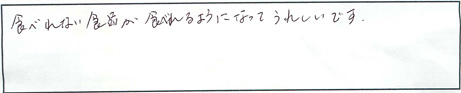 食べれない食品が食べれるようになってうれしいです.